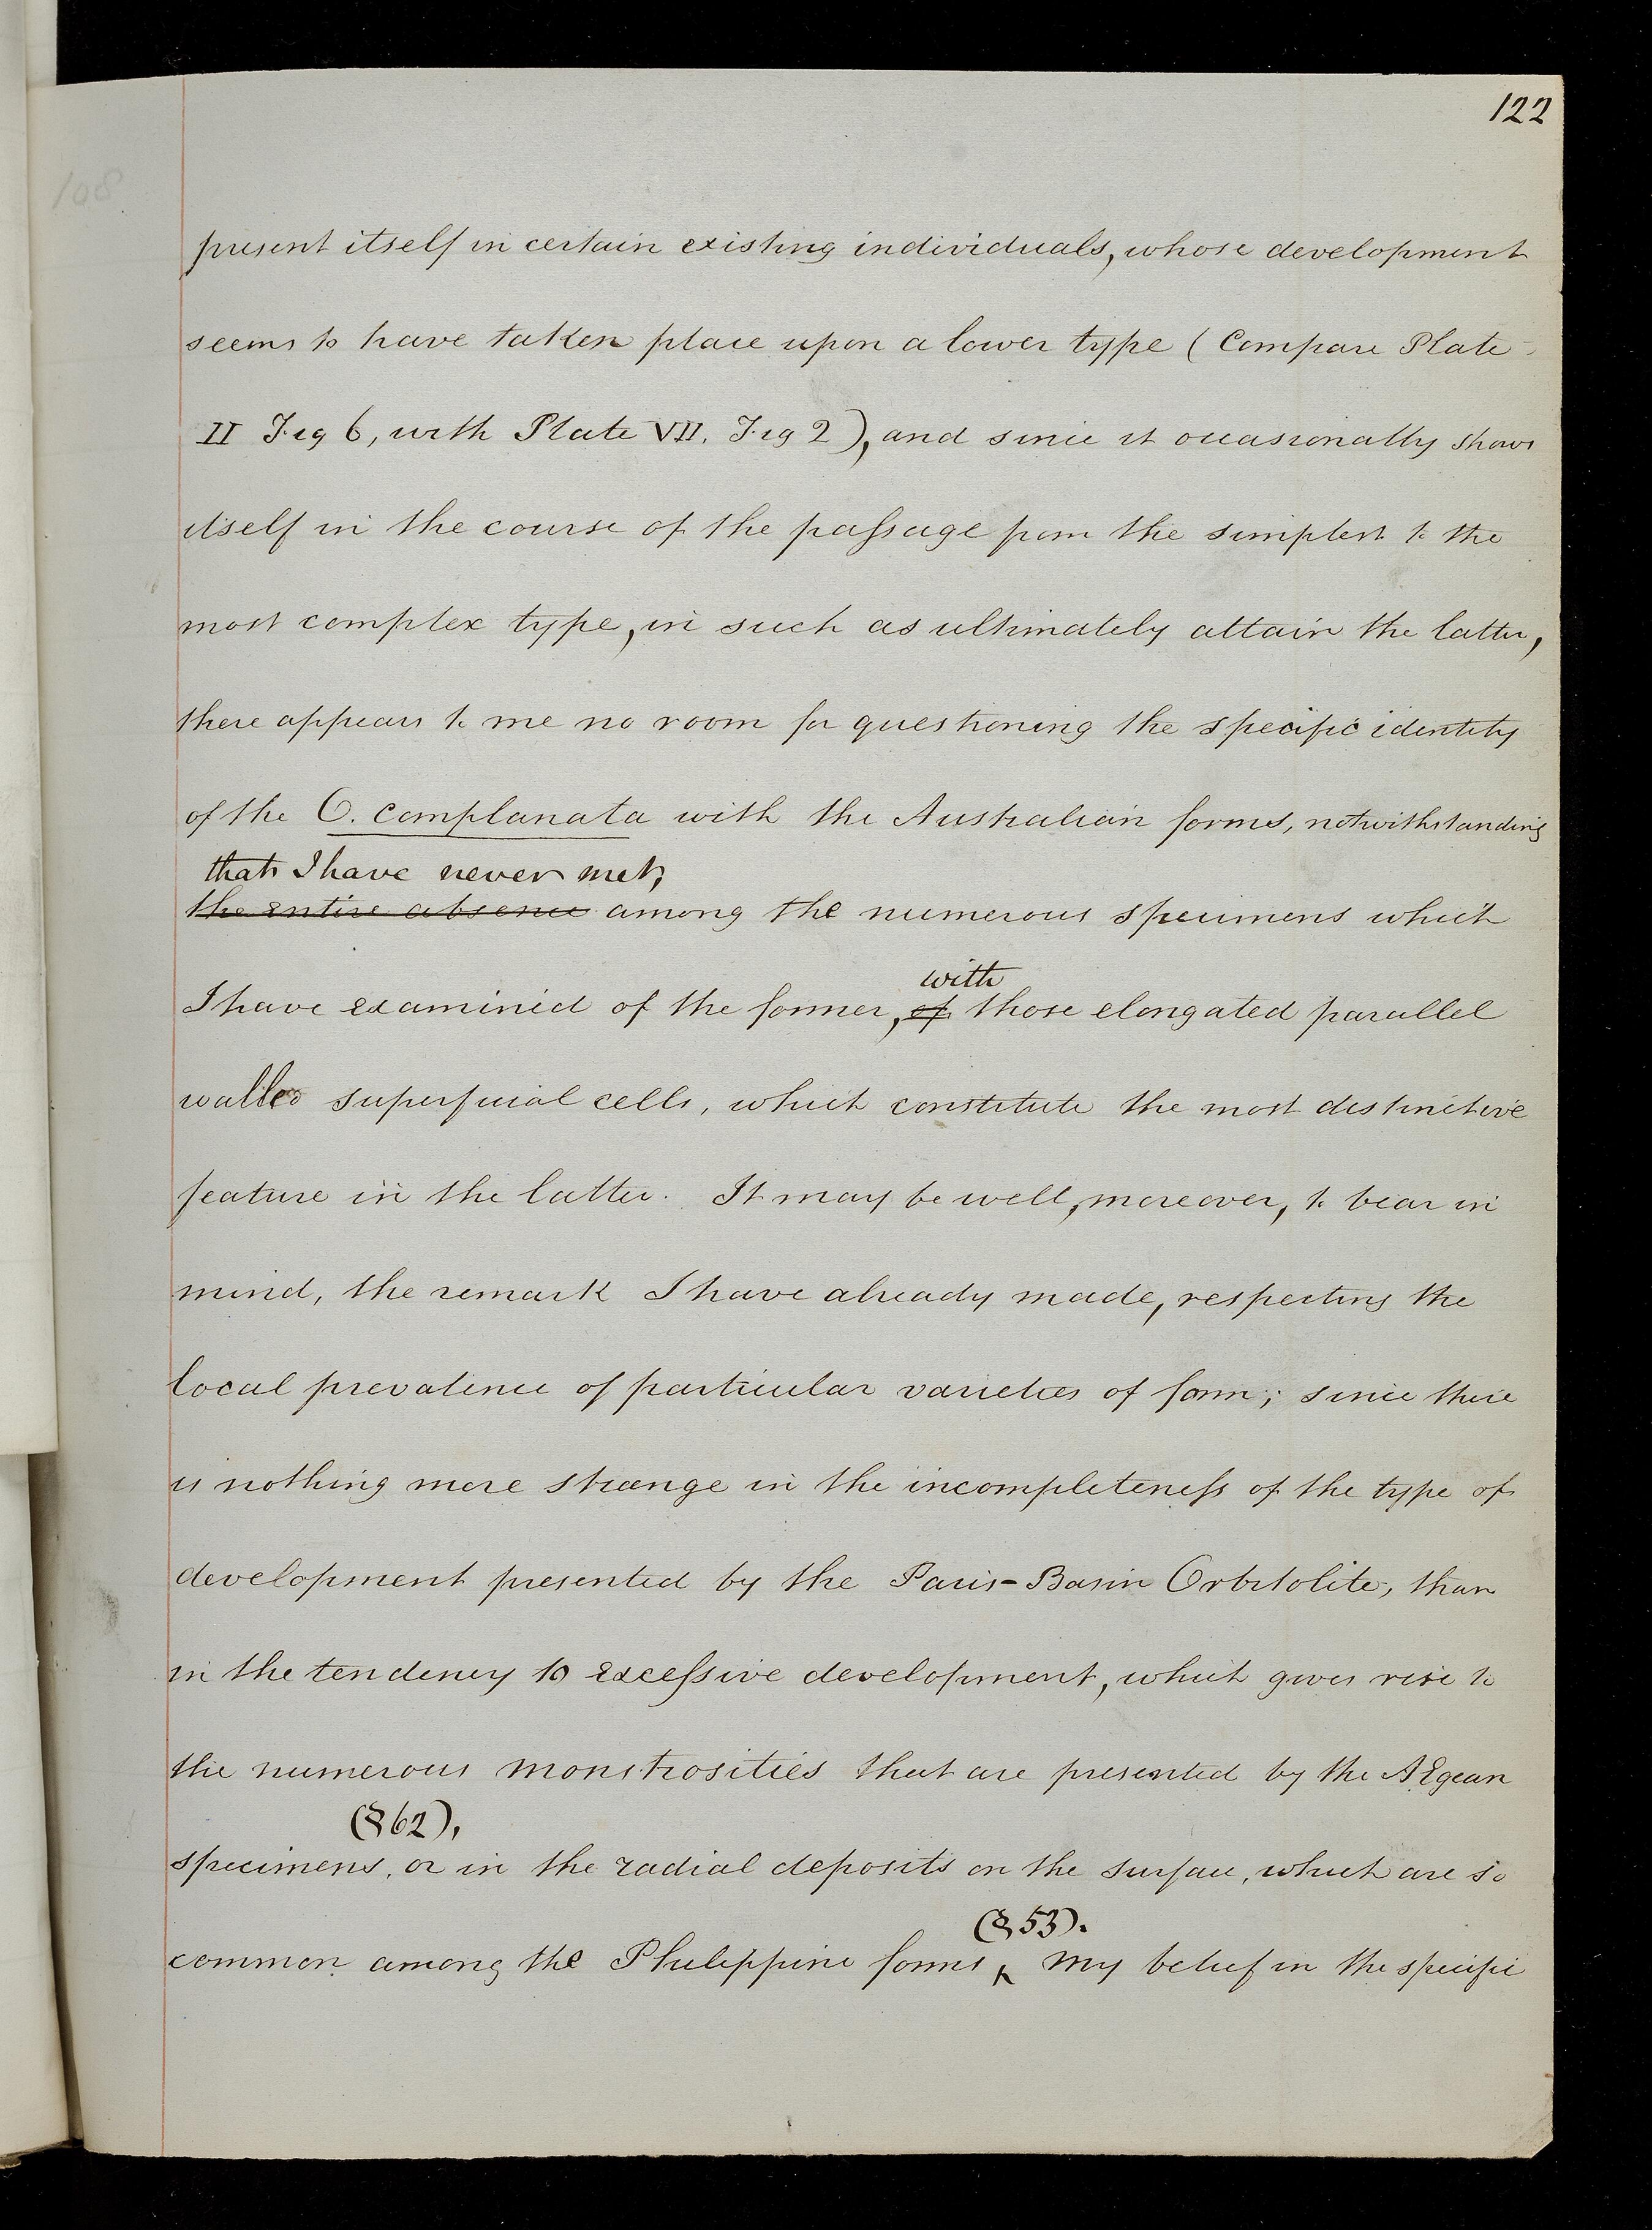 122
108
present itself in certain existing individuals, whose development
seems to have taken place upon a lower type (Compare Plate
II Fig 6, with Plate VII. Fig 2), and since it occasionally shows
itself in the course of the passage from the simplest to the
most complex type, in such as ultimately attain the latter,
there appears to me no room for questioning the specific identity
of the O. complanata with the Australian forms, notwithstanding
that I have never met,
the entire absence among the numerous specimens which
with
I have examined of the former, of those elongated parallel
walled superficial cells, which constitute the most distinctive
feature in the latter. It may be well, moreover, to bear in
mind, the remark I have already made, respecting the
local prevalence of particular varieties of form; since there
is nothing more strange in the incompleteness of the type of
development presented by the Paris-Basin Orbitolite, than
in the tendency to excessive development, which gives rise to
the numerous monstrosities that are presented by the AEgean
(§62),
specimens, or in the radial deposits on the surface, which are so
(§53).
common among the Philippine forms ‸ My belief in the specific